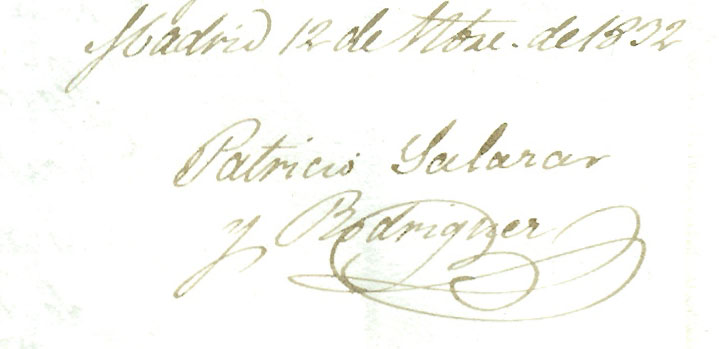 Madrid 12 de Nbre. de 1832
Patricio Salazar
y Rodriguez